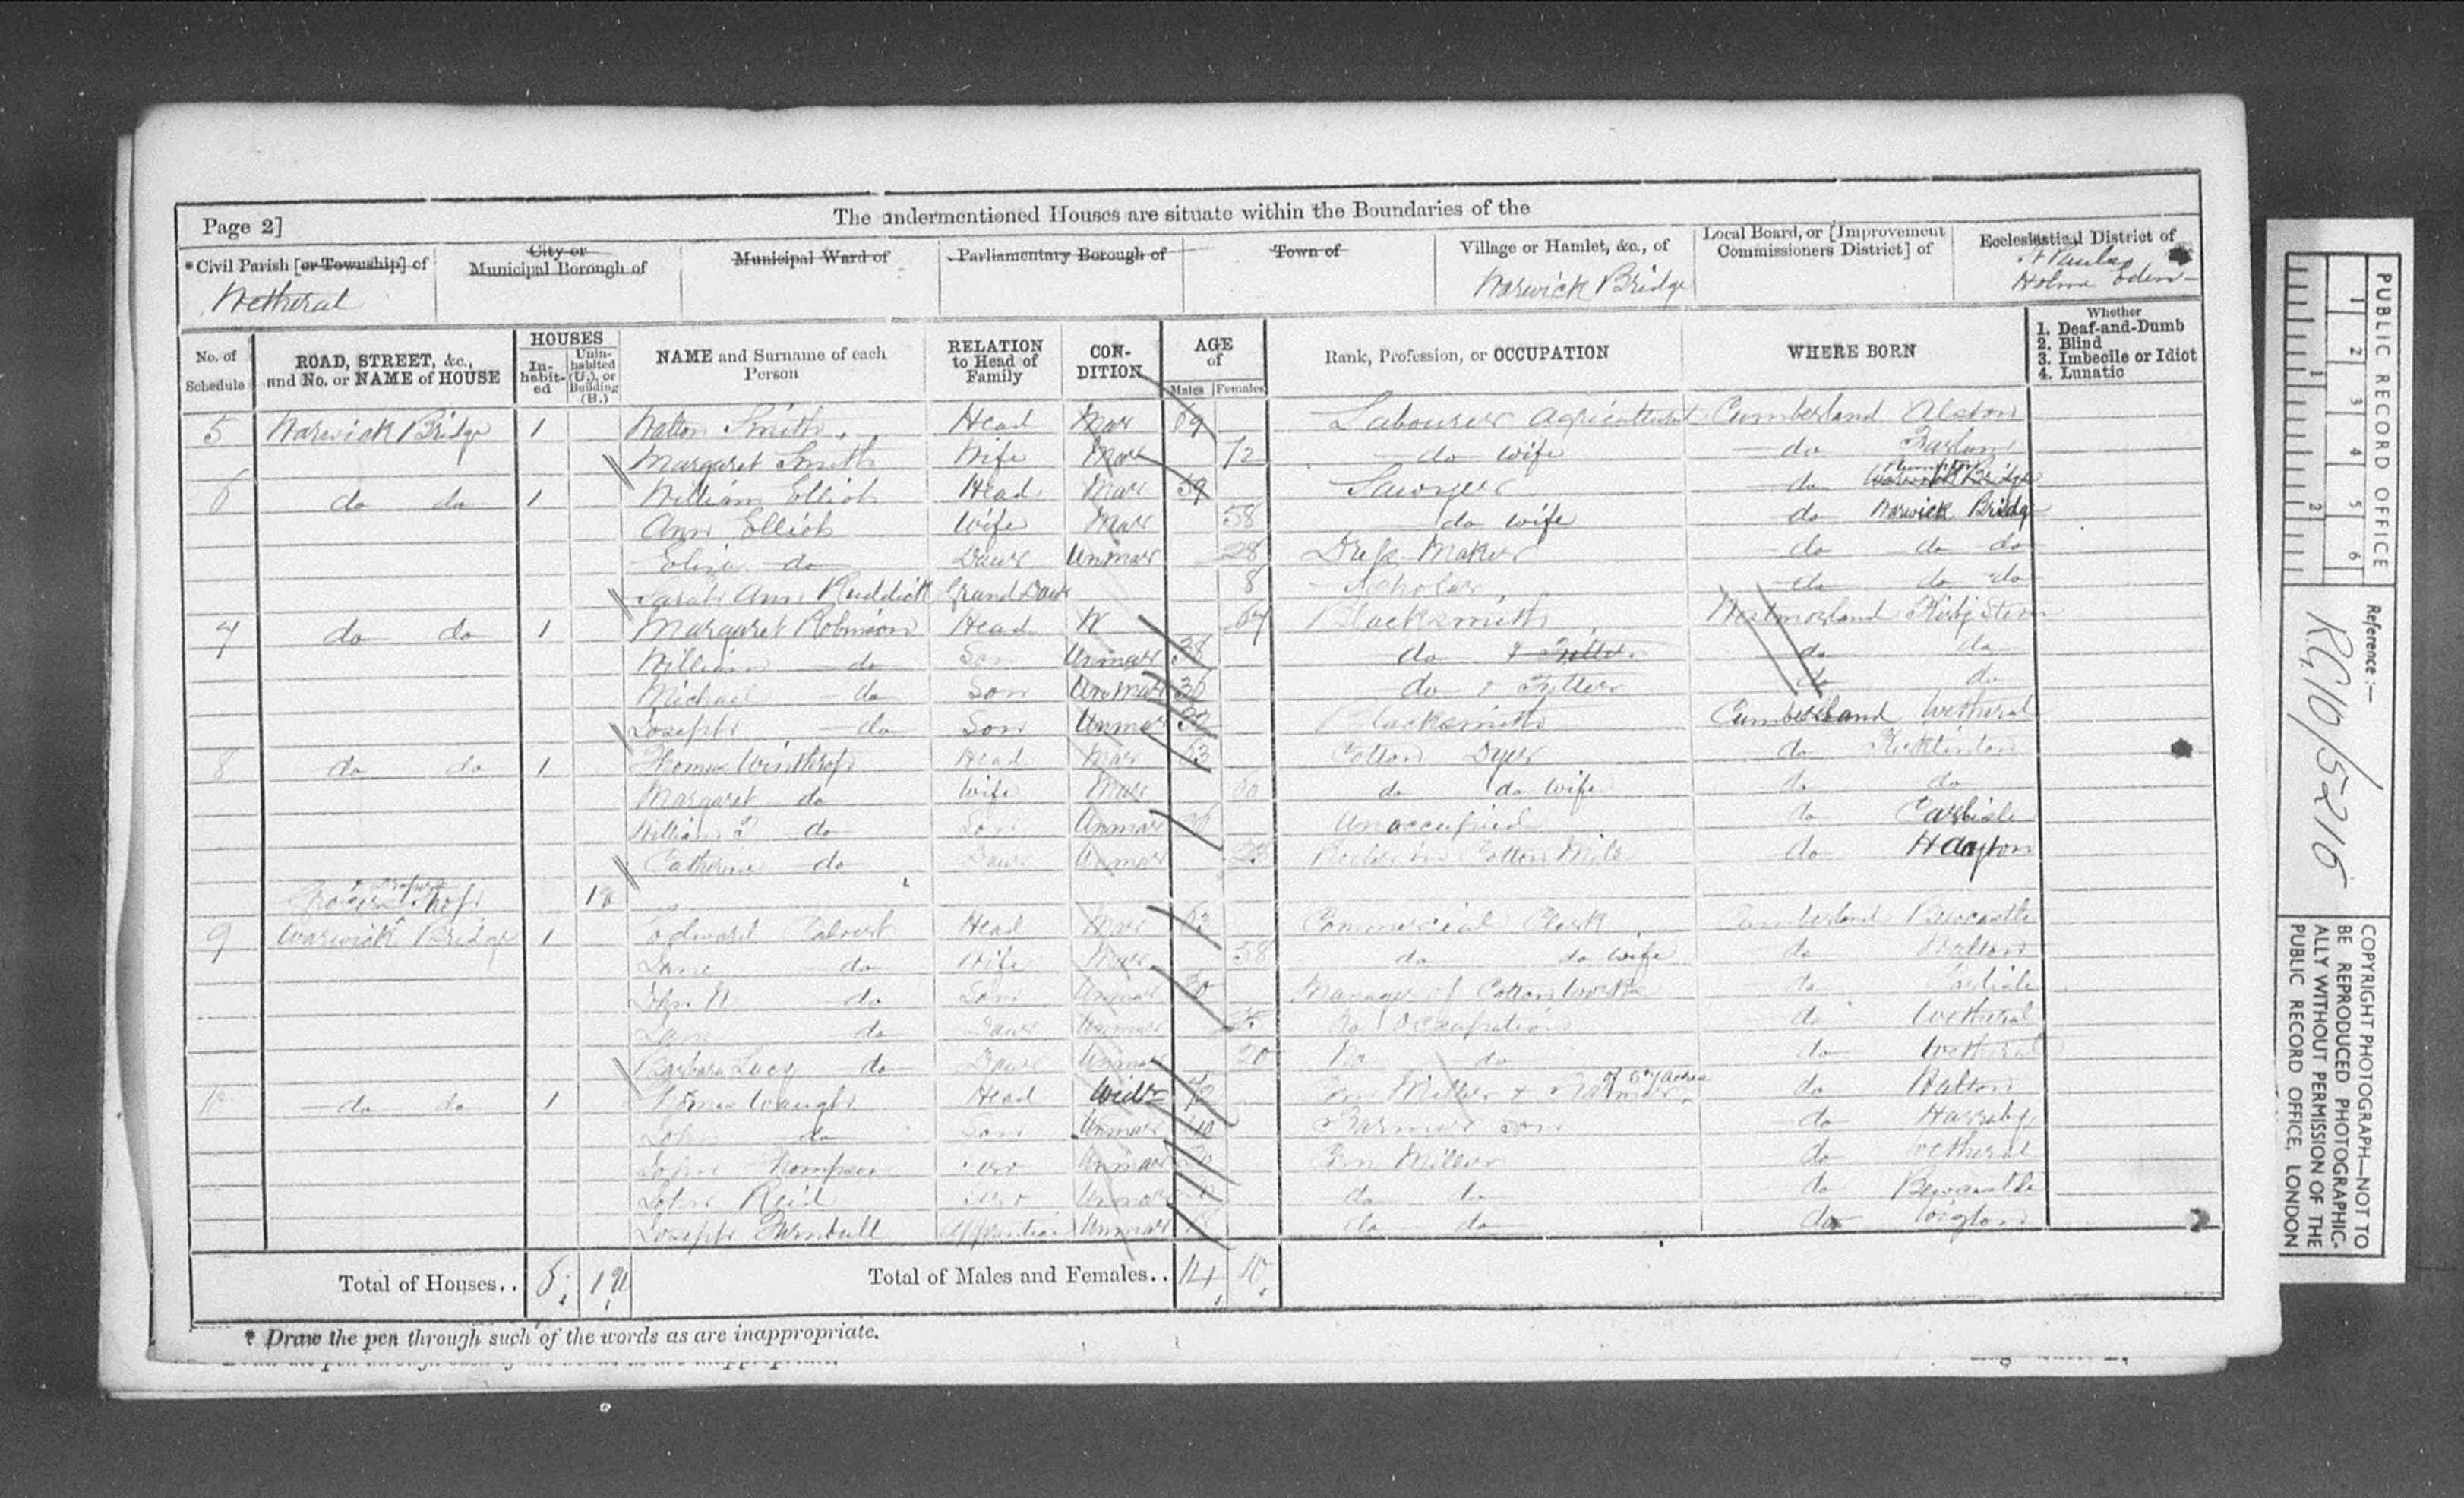 The undermentioned Houses are situate within the Boundaries of the
Page 2]
*Civil Parish [or Township] of
City or Municipal Borough of
Municipal Ward of
Parliamentary Borough of
Town of
Village or Hamlet, &c., of
Local Board, or [Improvement Commissioners District] of
Ecclesiastical District of
Wetheral
Warwick Bridge
St Pauls Holme Eden
No. of Schedule
ROAD, STREET, &c., and No. or NAME of HOUSE
HOUSES
In-habit-ed
Unin-habited (U.), or Building (B.)
NAME and Surname of each Person
RELATION to Head of Family
CON-DITION
AGE of
Males
Females
Rank, Profession, or OCCUPATION
WHERE BORN
Whether
1. Deaf-and-Dumb
2. Blind
3. Imbecile or Idiot
4. Lunatic
5 Warwick Bridge 1 Walton Smith Head Mar 69 Labourer Agricultural Cumberland Alston
Margaret Smith Wife Mar 72 do wife do Farlam
6 do do 1 William Elliot Head Mar 59 Sawyer do Warwick Bridge
Ann Elliot Wife Mar 58 do wife do Warwick Bridge
Eliza do Daur Unmar 28 Dress Maker do do do
Sarah Ann Ruddick Grand Daur 8 Scholar do do do
7 do do 1 Margaret Robinson Head W 64 Blacksmith Westmorland Kirby Steven
William do Son Unmar 38 do & Fitter do do
Michael do Son Unmar 36 do & Fitter do do
Joseph do Son Unmar Blacksmith Cumberland Wetheral
8 do do 1 Thomas Winthrop Head Mar 63 Cotton Dyer do Kirklinton
Margaret do Wife Mar 60 do do wife do do
William do Son Unmar Unoccupied do Carlisle
Catherine do Daur Unmar Cotton Mill do Hayton
Grocers & Drapers Shop 1 U
9 Warwick Bridge 1 Edward Calvert Head Mar 63 Commercial Clerk Cumberland Bewcastle
Jane do Wife Mar 58 do do wife do Walton
John do Son Unmar 30 Manager of Cotton Works do Carlisle
Jane do Daur Unmar No Occupation do Wetheral
Barbara Lucy do Daur Unmar 20 No do do Wetheral
10 do do 1 Thomas Waugh Head Widr Corn Miller & Farmer of 57 Acres do Walton
John do Son Unmar 40 Farmers Son do Harraby
John Thompson Serv Unmar Corn Miller do Wetheral
John Reid Serv Unmar do do do Bewcastle
Joseph Turnbull Apprentice Unmar do do do Wigton
Total of Houses.. 6 1 U
Total of Males and Females.. 14 10
* Draw the pen through such of the words as are inappropriate.
PUBLIC RECORD OFFICE
1 2 3 4 5 6
1 2
Reference:-
RG10/5216
COPYRIGHT PHOTOGRAPH—NOT TO
BE REPRODUCED PHOTOGRAPHIC-
ALLY WITHOUT PERMISSION OF THE
PUBLIC RECORD OFFICE, LONDON